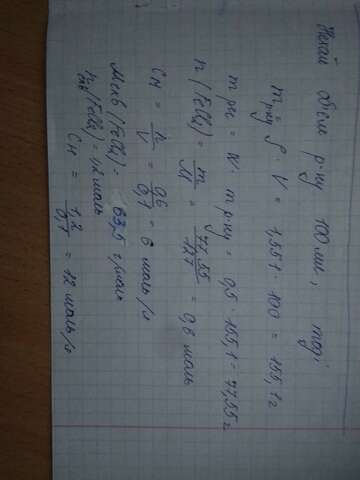 Нехай об'єм р-ну 100 мл, тоді
m р-ну = ρ · V = 1,551 · 100 = 155,1 г
m реч = W · m р-ну = 0,5 · 155,1 = 77,55 г
n (FeCl₂) = m/M = 77,55/127 = 0,6 моль
CH = n/V = 0,6/0,1 = 6 моль/л
Mекв (FeCl₂) = 63,5 г/моль
nекв (FeCl₂) = 1,2 моль
CH = 1,2/0,1 = 12 моль/л